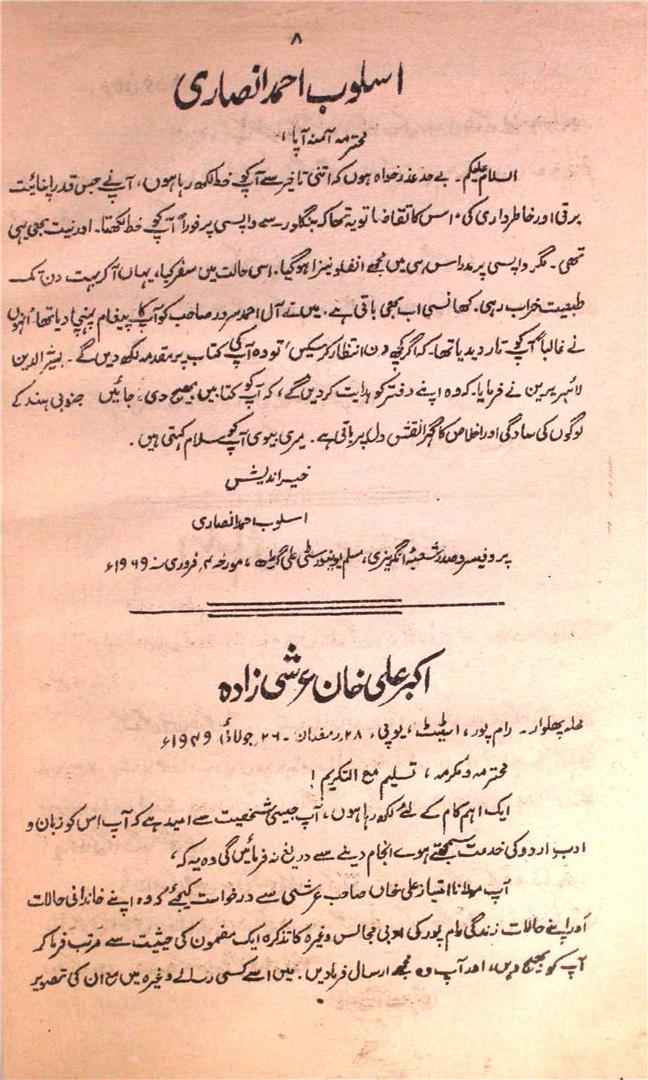 ۸
اسلوب احمد انصاری
محترمہ آمنہ آپا،
السلام علیکم۔ بے حد عذر خواہ ہوں کہ اتنی تاخیر سے آپ کو خط لکھ رہا ہوں، آپ نے جس قدر اپنائیت
برتی اور خاطرداری کی، اس کا تقاضا تو یہ تھا کہ بنگلور سے واپسی پر فوراً آپ کو خط لکھتا۔ اور نیت بھی یہی
تھی۔ مگر واپسی پر مدراس ہی میں مجھے انفلوئنزا ہوگیا۔ اسی حالت میں سفر کیا، یہاں آکر بہت دن تک
طبیعت خراب رہی۔ کھانسی اب بھی باقی ہے۔ میں نے آل احمد سرور صاحب کو آپ کا پیغام پہنچا دیا تھا، انہوں
نے غالباً آپ کو تار دیدیا تھا۔ کہ اگر کچھ دن انتظار کرسکیں، تو وہ آپ کی کتاب پر مقدمہ لکھ دیں گے۔ بشیرالدین
لائبریرین نے فرمایا۔ کہ وہ اپنے دفتر کو ہدایت کردیں گے، کہ آپ کو کتابیں بھیج دی جائیں جنوبی ہند کے
لوگوں کی سادگی اور اخلاص کا گہرا نقش دل پر باقی ہے۔ میری بیوی آپ کو سلام کہتی ہیں۔
خیر اندیش
اسلوب احمد انصاری
پروفیسر و صدر شعبۂ انگریزی، مسلم یونیورسٹی علی گڑھ، مورخہ ۴ فروری سنہ ۱۹۶۹ء
اکبر علی خان عرشی زادہ
محلہ پھلوار۔ رام پور، اسٹیٹ، یوپی، ۲۸ رمضان۔ ۲۶ جولائی ۱۹۴۹ء
محترمہ و مکرمہ، تسلیم مع التکریم!
ایک اہم کام کے لئے لکھ رہا ہوں، آپ جیسی شخصیت سے امید ہے کہ آپ اس کو زبان و
ادب اردو کی خدمت سمجھتے ہوے انجام دینے سے دریغ نہ فرمائیں گی وہ یہ کہ،
آپ مولانا امتیاز علی خاں صاحب عرشی سے درخواست کیجئے کہ وہ اپنے خاندانی حالات
اور اپنے حالات زندگی رام پور کی ادبی مجالس وغیرہ کا تذکرہ ایک مضمون کی حیثیت سے مرتب فرما کر
آپ کو بھیج دیں، اور آپ وہ مجھے ارسال فرمادیں۔ میں اسے کسی رسالے وغیرہ میں مع ان کی تصویر